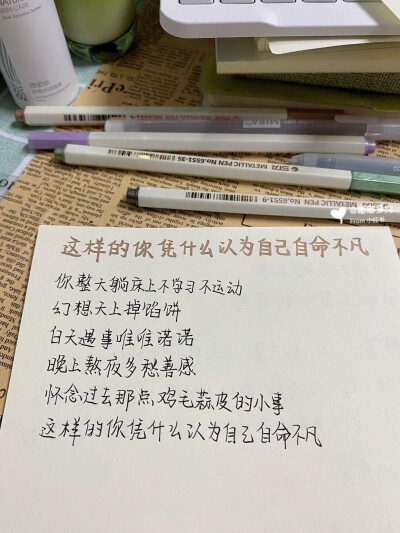 SKIN CARE
MIRA
STA METALLIC PEN No.6551-35
STA METALLIC PEN No.6551-9
这样的你凭什么认为自己自命不凡
你整天躺床上不学习不运动
幻想天上掉馅饼
白天遇事唯唯诺诺
晚上熬夜多愁善感
怀念过去那点鸡毛蒜皮的小事
这样的你凭什么认为自己自命不凡